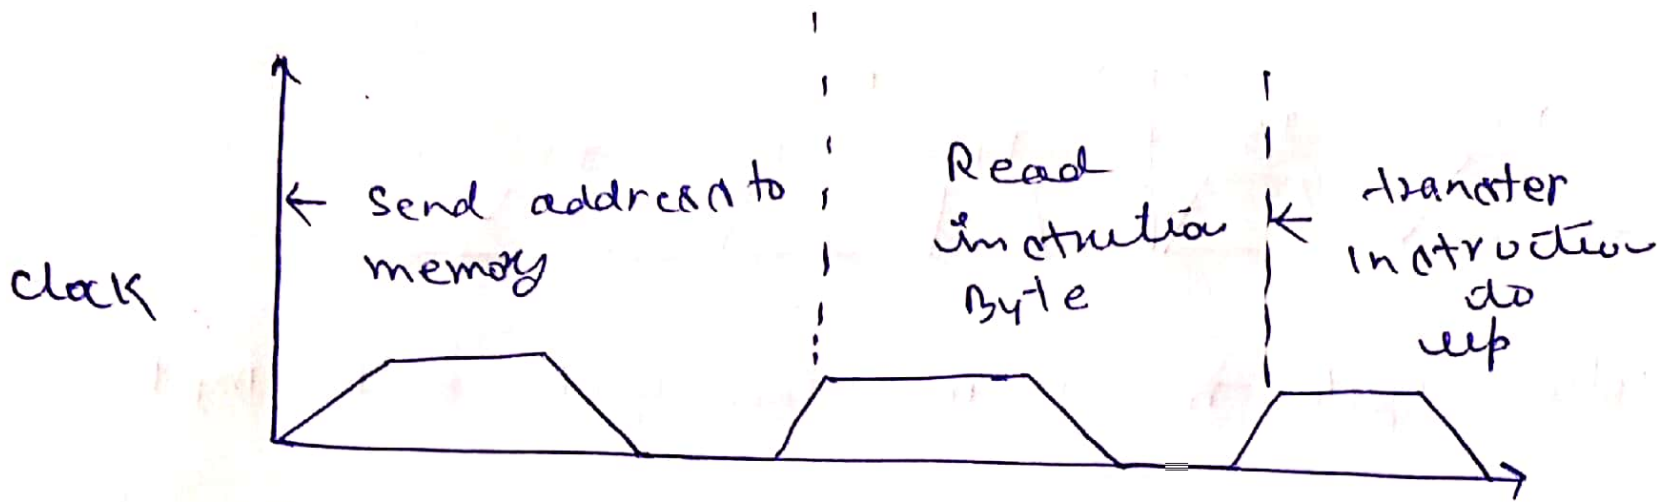 Clock
← Send address to
memory
Read
instruction
Byte
← transfer
instruction
to
μp